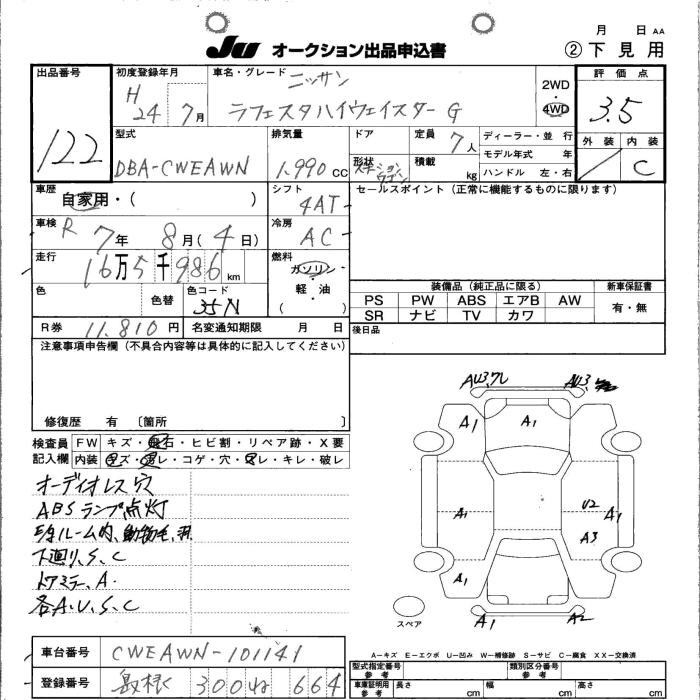 月 日 AA
JU オークション出品申込書 ②下見用
出品番号 122
初度登録年月 H 24 7月
車名・グレード ニッサン
ラフェスタハイウェイスターG
2WD・4WD
評価点 3.5
外装 内装 C
型式 DBA-CWEAWN
排気量 1.990 cc
ドア
形状 ステーションワゴン
定員 7人
積載 kg
ディーラー・並 行
モデル年式 年
ハンドル 左・右
車歴 自家用・( )
シフト 4AT
セールスポイント(正常に機能するものに限ります)
車検 R 7年 8月(4日)
冷房 AC
走行 16万5千986km
燃料 ガソリン・軽油・( )
色 色替 色コード 35N
装備品(純正品に限る) 新車保証書
PS PW ABS エアB AW 有・無
SR ナビ TV カワ
R券 11.810円 名変通知期限 月 日
後日品
注意事項申告欄(不具合内容等は具体的に記入してください)
修復歴 有 〔箇所 〕
検査員記入欄
FW キズ・飛石・ヒビ割・リペア跡・X要
内装 キズ・汚レ・コゲ・穴・スレ・キレ・破レ
オーディオレス穴
ABSランプ点灯
下廻り、S、C
ドアミラー、A.
各A、U、S、C
AU3,ワレ AU3,
A1 A1
A1 U2 A1
A3
A1
スペア A1 A2
A-キズ E-エクボ U-凹み W-補修跡 S-サビ C-腐食 XX-交換済
車台番号 CWEAWN-101141
登録番号 島根 300 ね 664
型式指定番号 参考 類別区分番号 参考
車庫証明用 参考 長さ cm 幅 cm 高さ cm